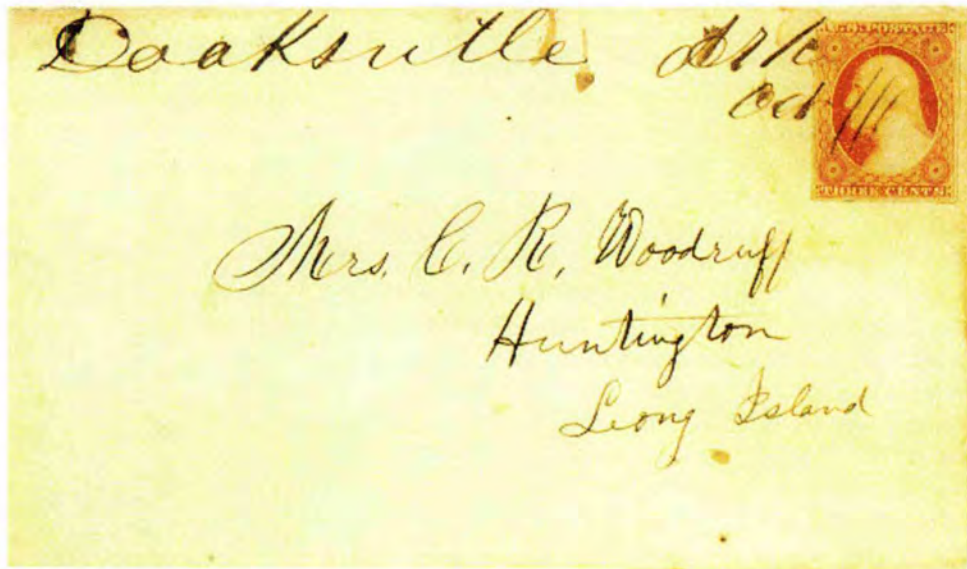 Doaksville Ark
Oct 11
U.S. POSTAGE
THREE CENTS
Mrs. C. R. Woodruff
Huntington
Long Island